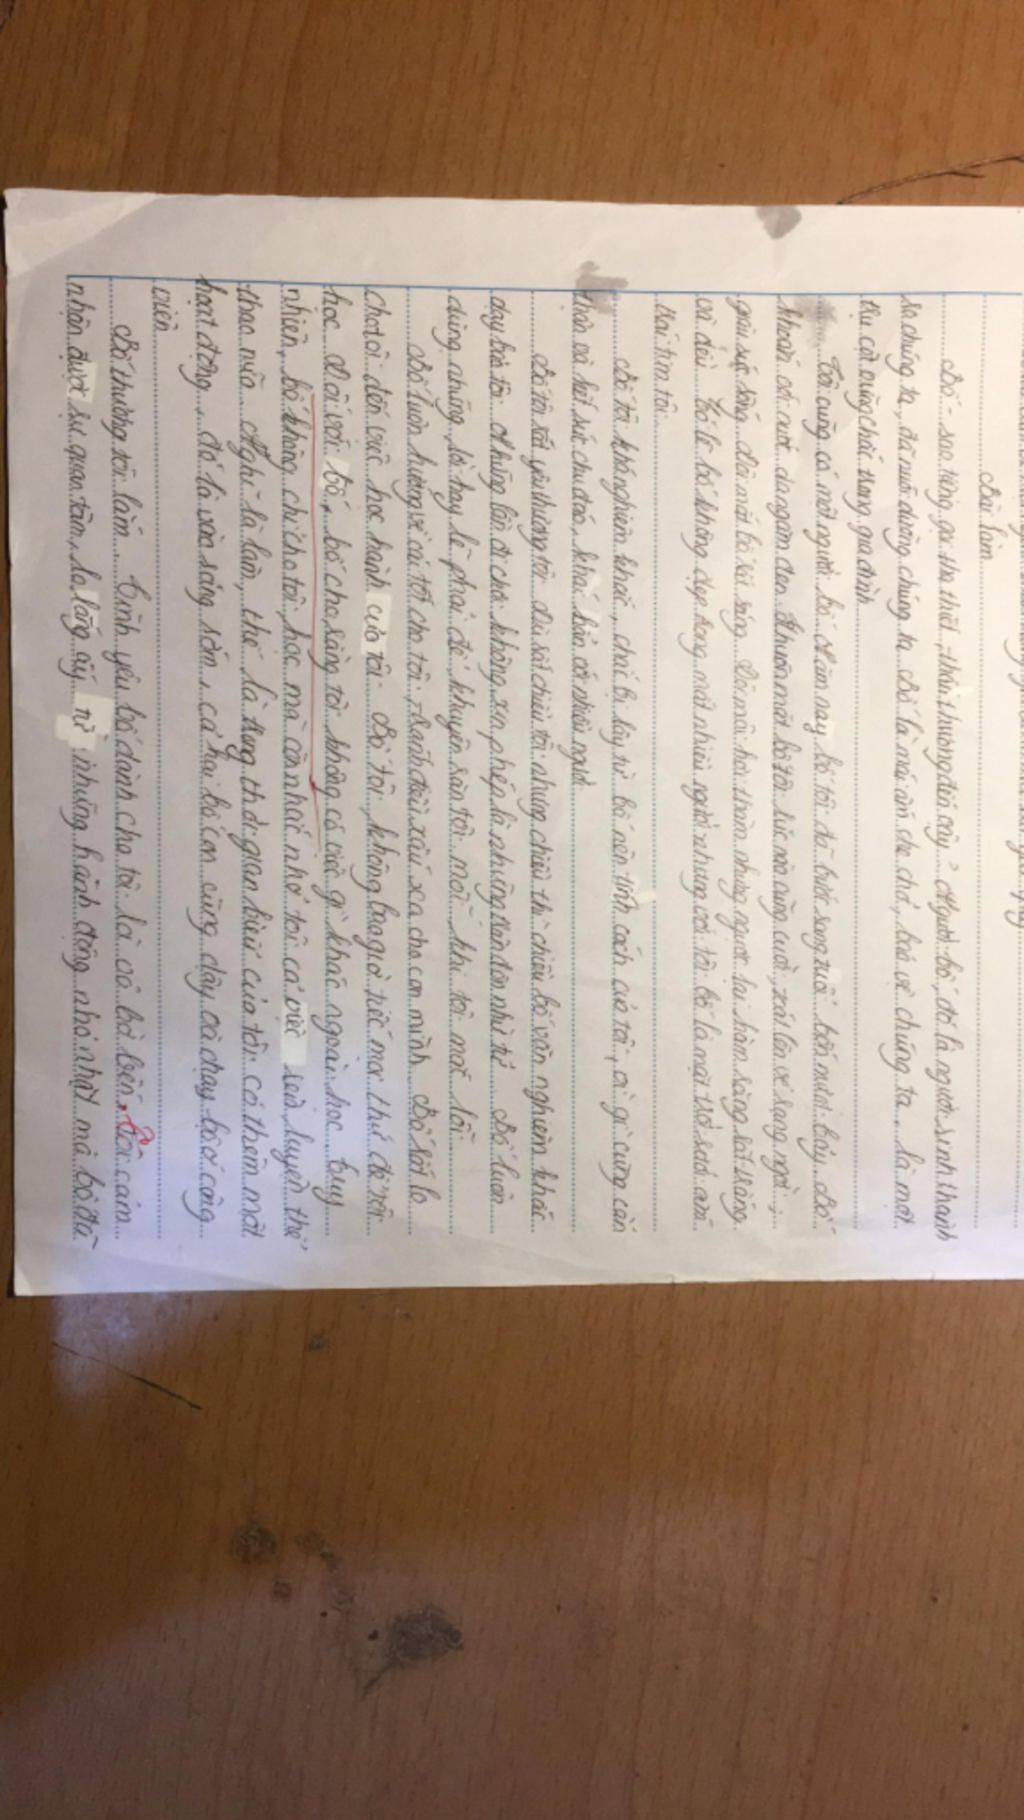 Bài làm
Bố - sao tiếng gọi tha thiết, thân thương đến vậy? Người bố, đó là người sinh thành
ra chúng ta, đã nuôi dưỡng chúng ta. Bố là mái ấm che chở, bảo vệ chúng ta, là một
trụ cột vững chắc trong gia đình.
Tôi cũng có một người bố. Năm nay bố tôi đã bước sang tuổi bốn mươi bảy. Bố
khoác với nước da ngăm đen. Khuôn mặt bố tôi lúc nào cũng cười, toát lên vẻ rạng ngời,
giàu sức sống. Đôi mắt bố rất sáng. Đôi môi hơi thâm nhưng ngược lại hàm răng rất trắng
và đều. Có lẽ bố không đẹp trong mắt nhiều người nhưng với tôi bố là một thứ sưởi ấm
trái tim tôi.
Bố tôi khá nghiêm khắc, chắc bị lây từ bố nên tính cách của tôi, cái gì cũng cẩn
thận và hết sức chu đáo, khác hẳn với nhiều người.
Bố tôi rất yêu thương tôi. Dù rất chiều tôi nhưng chiều thì chiều bố vẫn nghiêm khắc
dạy bảo tôi. Những lần đi chơi không xin phép là những lần đòn nhừ tử. Bố luôn
dùng những lời hay lẽ phải để khuyên răn tôi mỗi khi tôi mắc lỗi.
Bố luôn hướng về cái tốt cho tôi, dành điều xấu xa cho con mình. Bố rất lo
cho tôi đến việc học hành của tôi. Bố tôi không bao giờ tiếc mọi thứ để tôi
học. Đối với bố, bố cho rằng tôi không có việc gì khác ngoài học. Tuy
nhiên, bố không chỉ cho tôi học mà còn nhắc nhở tôi cả việc rèn luyện thể
thao nữa. Nghĩ là làm, thế là trong thời gian biểu của tôi có thêm một
hoạt động, đó là vào sáng sớm, cả hai bố con cùng dậy và chạy bộ ở công
viên.
Bố thương tôi lắm. Tình yêu bố dành cho tôi là vô bờ bến. Tôi cảm
nhận được sự quan tâm, lo lắng ấy từ những hành động nhỏ nhặt mà bố đã